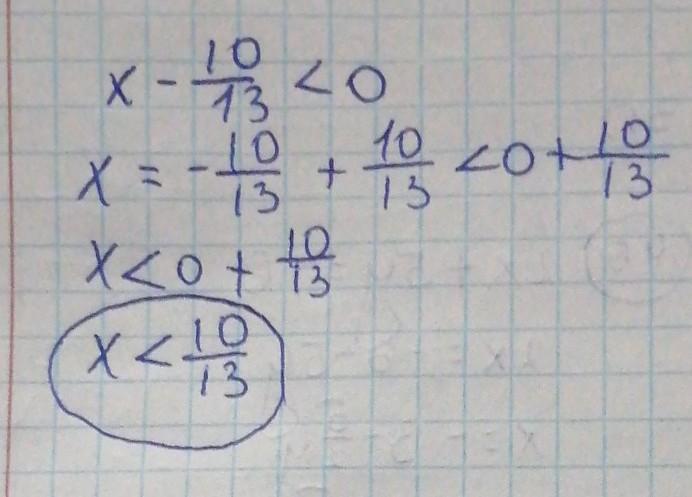 x - 10/13 < 0
x = - 10/13 + 10/13 < 0 + 10/13
x < 0 + 10/13
x < 10/13